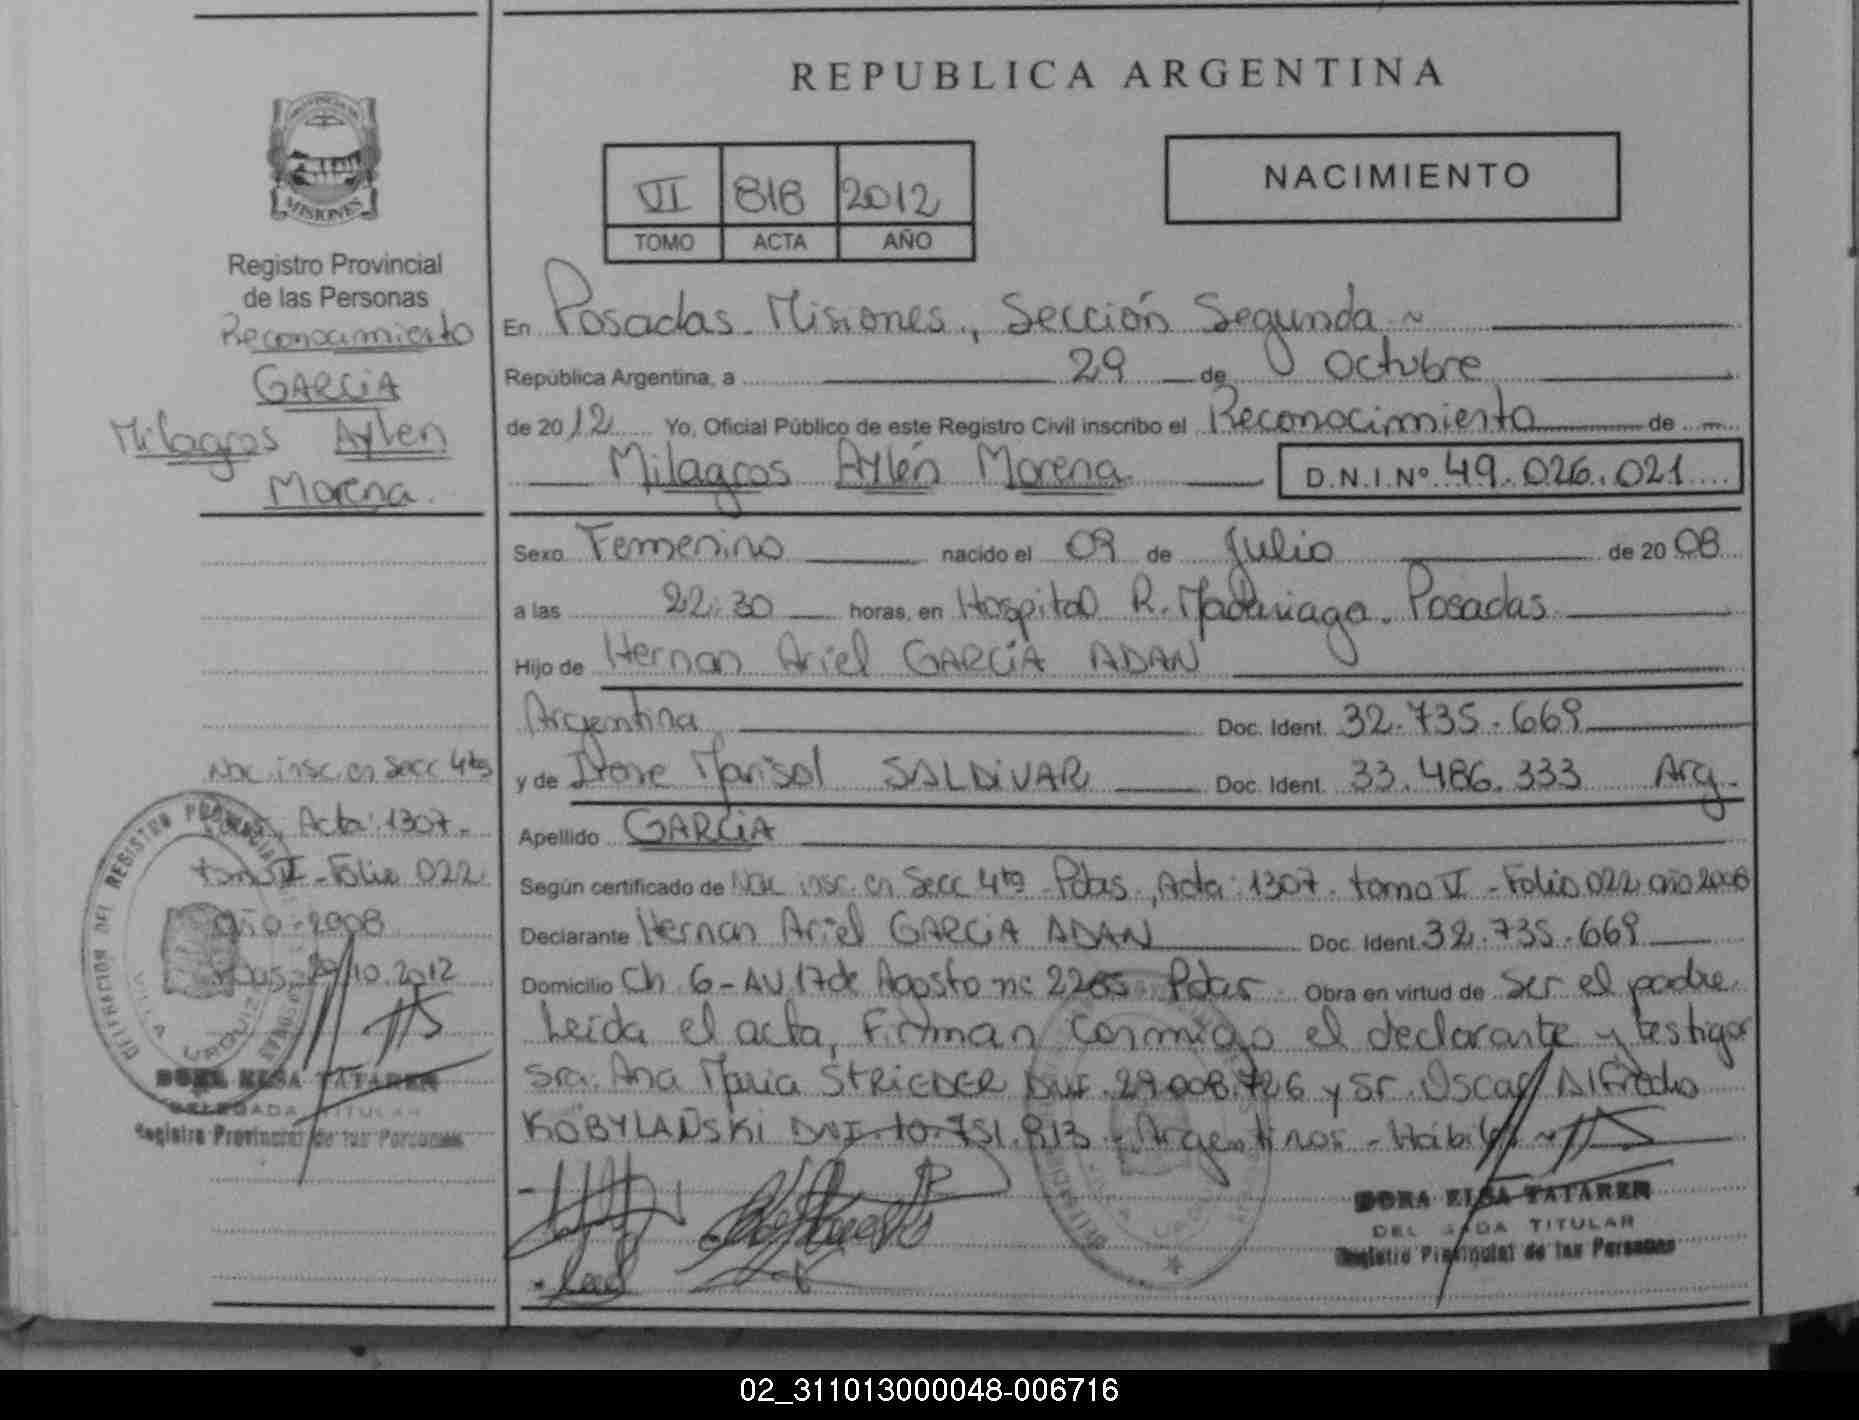 REPUBLICA ARGENTINA
PROVINCIA DE
MISIONES
VI 818 2012
TOMO ACTA AÑO
NACIMIENTO
Registro Provincial
de las Personas
Reconocimiento
GARCIA
Milagros Aylen
Morena.
En Posadas - Misiones, Sección Segunda ~
República Argentina, a 29 de Octubre
de 2012 Yo, Oficial Público de este Registro Civil inscribo el Reconocimiento de
Milagros Aylén Morena D.N.I.Nº 49.026.021
Sexo Femenino nacido el 09 de Julio de 2008
a las 22:30 horas, en Hospital R. Madariaga. Posadas
Hijo de Hernan Ariel GARCÍA ADAN
Argentina Doc. Ident. 32.735.669
y de Marisol SALDIVAR Doc. Ident. 33.486.333 Arg.
Apellido GARCIA
Según certificado de Nac. insc. en Secc 4ta - Pdas, Acta: 1307. tomo VI - Folio 022 año 2008
Declarante Hernan Ariel GARCIA ADAN Doc. Ident. 32.735.669
Domicilio Ch. 6 - AV 17 de Agosto nº 2265 Pdas Obra en virtud de ser el padre.
Leída el acta, Firman conmigo el declarante y testigos
Sra. Ana Maria STRIEDER DNI. 29.008.726 y Sr. Oscar Alfredo
KOBYLAÑSKI DNI. 10.751.813 - Argentinos - Hábiles ~
Nac. insc. en Secc 4ta
Acta: 1307 -
tomo VI - Folio 022
año - 2008
Pdas, 29.10.2012
DELEGACION DEL REGISTRO PROVINCIAL
VILLA URQUIZA
DORA ELSA TATAREN
DELEGADA TITULAR
Registro Provincial de las Personas
DORA ELSA TATAREN
DELEGADA TITULAR
Registro Provincial de las Personas
02_311013000048-006716